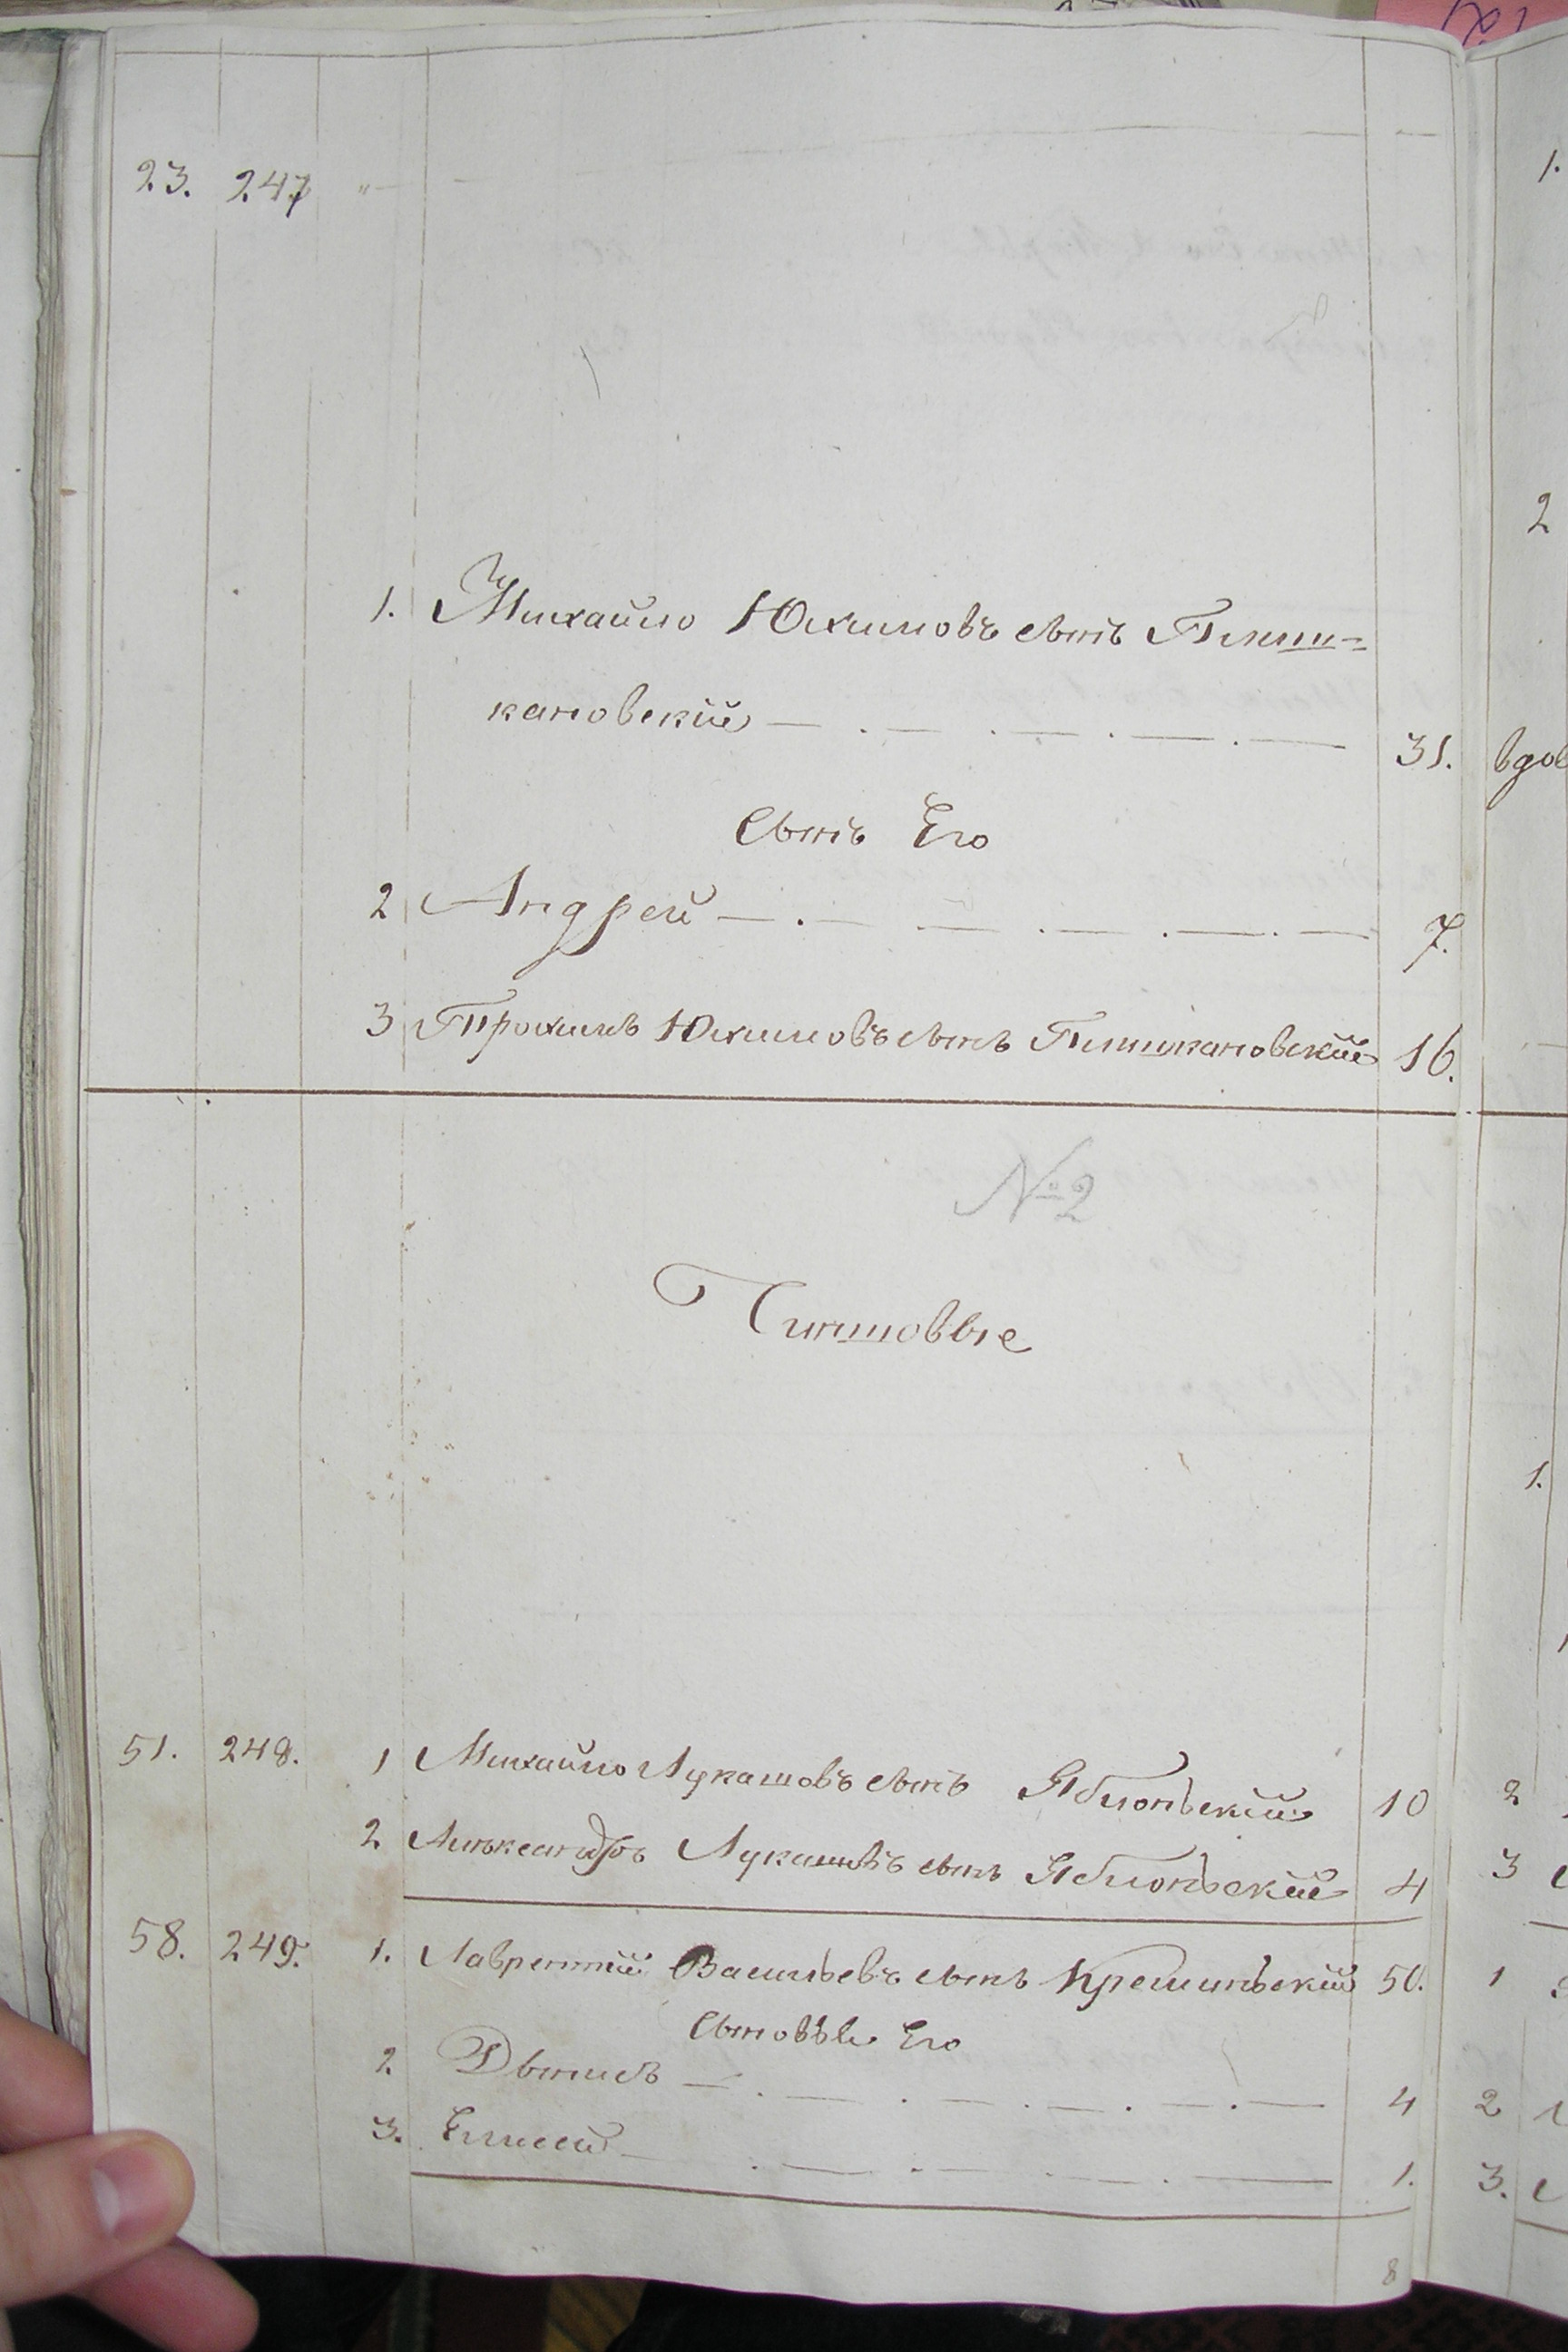 23. 247 "
1. Михайло Юхимовъ сынъ Пиши-
кановскій 31.
Сынъ Его
2 Андрей 7.
3 Трохимъ Юхимовъ сынъ Пишикановскій 16.
№ 2
Чиншовые
51. 248. 1 Михайло Лукашовъ сынъ Яблоньскій 10
2 Александръ Лукашовъ сынъ Яблоньскій 4
58. 249. 1. Лаврентій Васильевъ сынъ Креминьскій 50.
Сыновья Его
2. Денисъ 4
3. Елисей 1.
8
1.
2
вдов
1.
2
3
1
2
3.